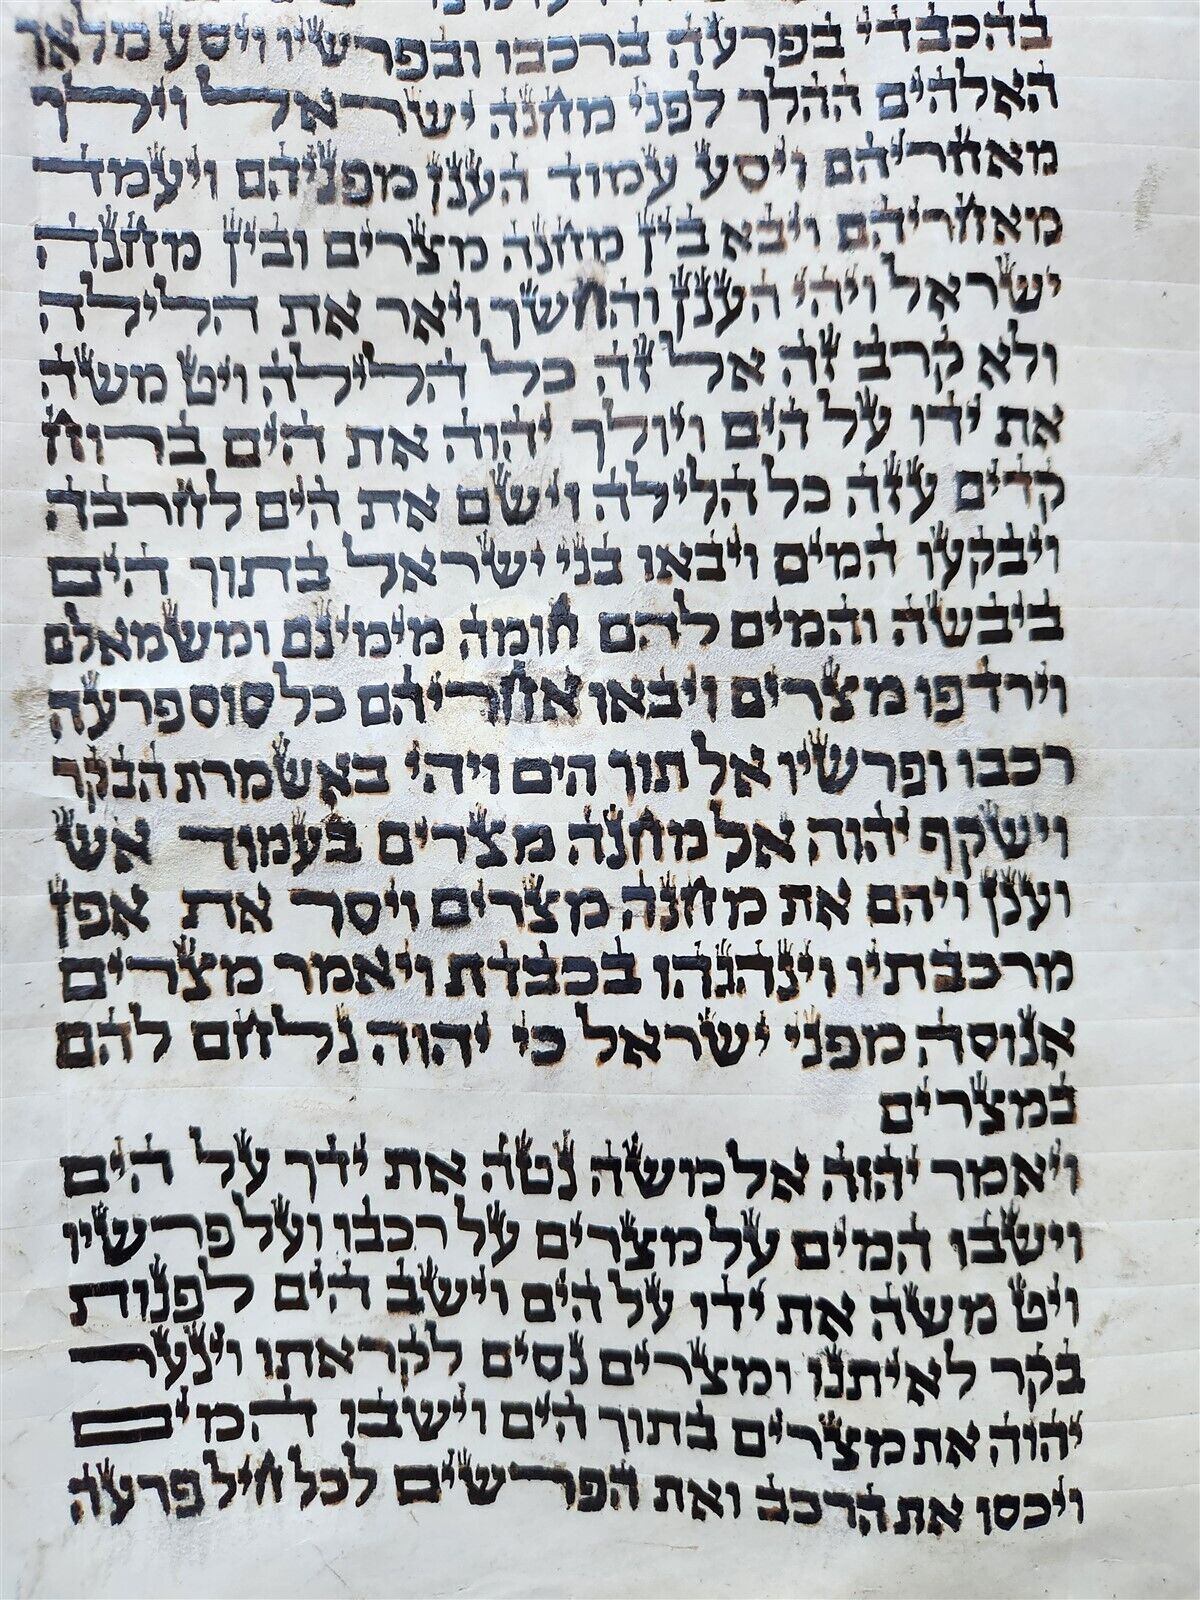 בהכבדי בפרעה ברכבו ובפרשיו ויסע מלאך
האלהים ההלך לפני מחנה ישראל וילך
מאחריהם ויסע עמוד הענן מפניהם ויעמד
מאחריהם ויבא בין מחנה מצרים ובין מחנה
ישראל ויהי הענן והחשך ויאר את הלילה
ולא קרב זה אל זה כל הלילה ויט משה
את ידו על הים ויולך יהוה את הים ברוח
קדים עזה כל הלילה וישם את הים לחרבה
ויבקעו המים ויבאו בני ישראל בתוך הים
ביבשה והמים להם חומה מימינם ומשמאלם
וירדפו מצרים ויבאו אחריהם כל סוס פרעה
רכבו ופרשיו אל תוך הים ויהי באשמרת הבקר
וישקף יהוה אל מחנה מצרים בעמוד אש
וענן ויהם את מחנה מצרים ויסר את אפן
מרכבתיו וינהגהו בכבדת ויאמר מצרים
אנוסה מפני ישראל כי יהוה נלחם להם
במצרים
ויאמר יהוה אל משה נטה את ידך על הים
וישבו המים על מצרים על רכבו ועל פרשיו
ויט משה את ידו על הים וישב הים לפנות
בקר לאיתנו ומצרים נסים לקראתו וינער
יהוה את מצרים בתוך הים וישבו המים
ויכסו את הרכב ואת הפרשים לכל חיל פרעה